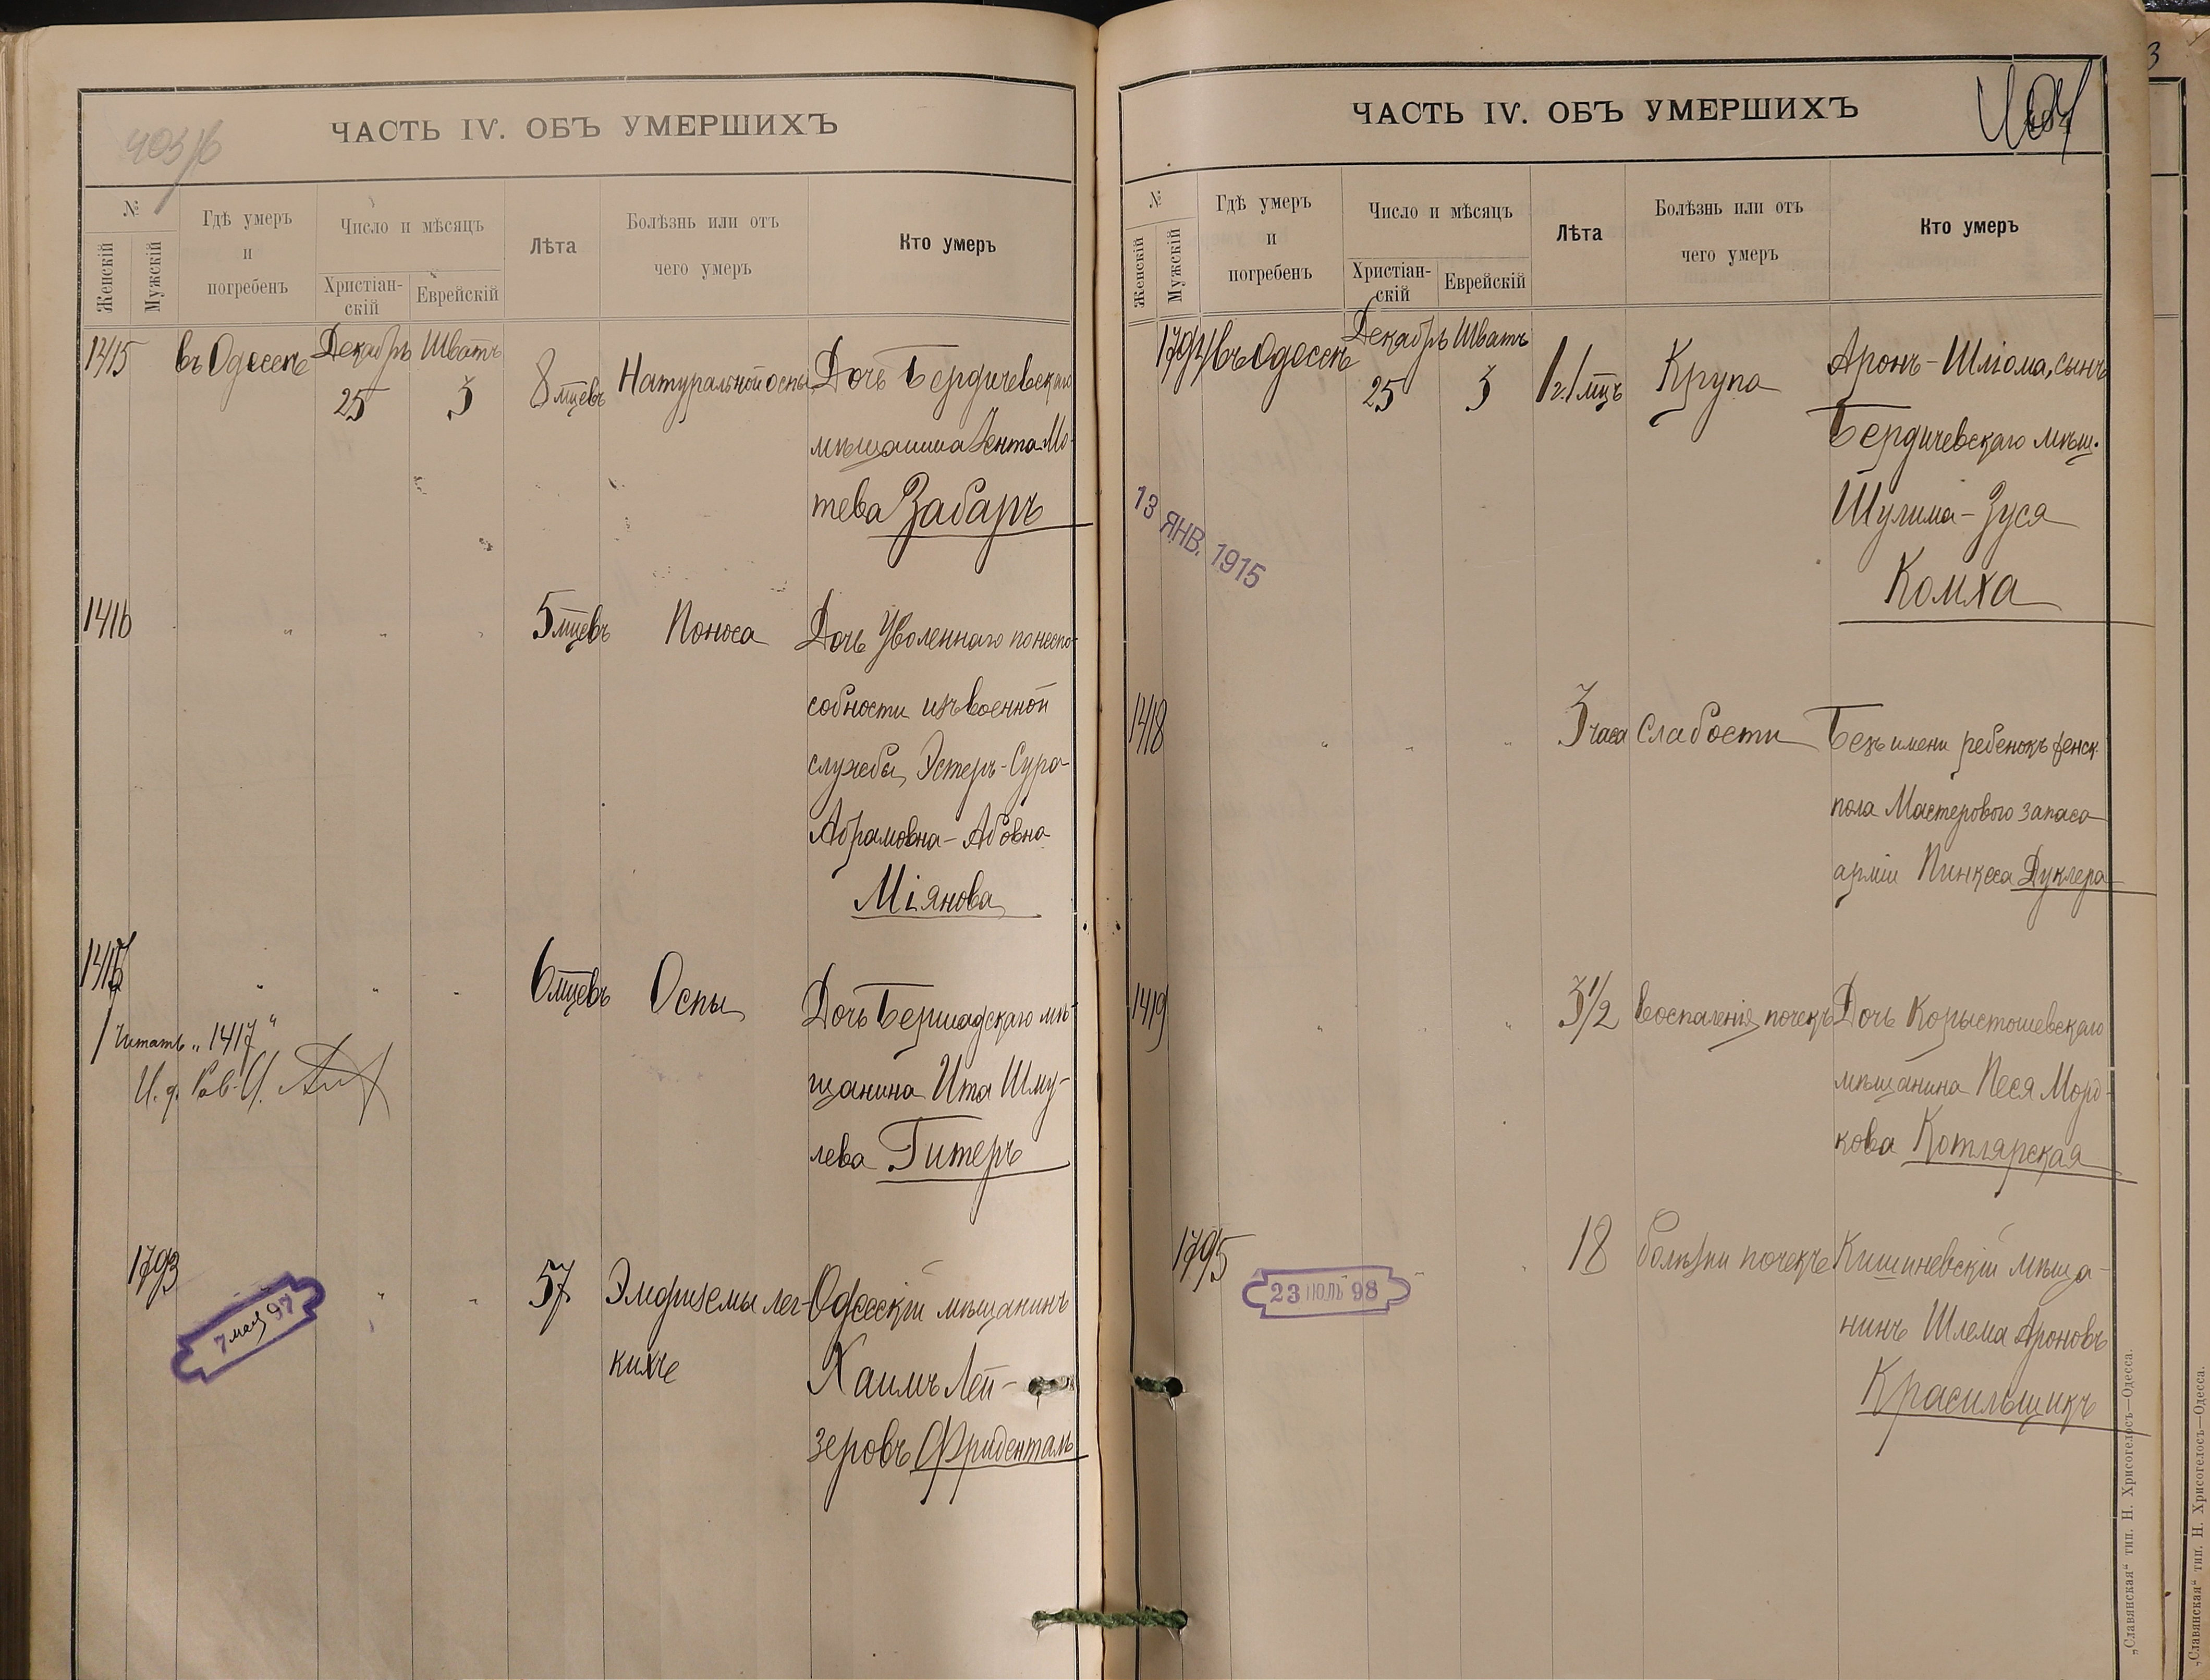 403/б
ЧАСТЬ IV. ОБЪ УМЕРШИХЪ
№
Женскій
Мужскій
Гдѣ умеръ
и
погребенъ
Число и мѣсяцъ
Христіан-
скій
Еврейскій
Лѣта
Болѣзнь или отъ
чего умеръ
Кто умеръ
1415
въ Одессѣ
Декабрь
25
Шватъ
3
8 мцевъ
Натуральной оспы
Дочь Бердичевскаго
мѣщанина Зента Мо-
тева Забаръ
1416
" " "
5 мцевъ
Поноса
Дочь Уволеннаго по неспо-
собности изъ военной
службы, Эстеръ-Сура
Абрамовна-Абовна
Міянова
1417
" " "
6 мцевъ
Оспы
Дочь Бершадскаго мѣ-
щанина Ита Шму-
лева Гитеръ
Читать „1417"
И. д. Рав.
1793
7 мая 97
" "
57
Эмфиземы лег-
кихъ
Одесскій мѣщанинъ
Хаимъ Лей-
зеровъ Фриденталь
404
ЧАСТЬ IV. ОБЪ УМЕРШИХЪ
№
Женскій
Мужскій
Гдѣ умеръ
и
погребенъ
Число и мѣсяцъ
Христіан-
скій
Еврейскій
Лѣта
Болѣзнь или отъ
чего умеръ
Кто умеръ
1794
въ Одессѣ
Декабрь
25
Шватъ
3
1 г. 1 мцъ
Крупа
Аронъ-Шліома, сынъ
Бердичевскаго мѣщ.
Шулима-Зуся
Комха
13 ЯНВ. 1915
1418
" " "
3 часа
Слабости
Безъ имени ребенокъ женск.
пола Мастерового запаса
арміи Пинкеса Дуклера
1419
" " "
3 1/2
Воспаленія почекъ
Дочь Корыстошевскаго
мѣщанина Песя Морд-
кова Котлярская
1795
23 ІЮЛЬ 98
" "
18
Болѣзни почекъ
Кишиневскій мѣща-
нинъ Шлема Ароновъ
Красильщикъ
„Славянская“ тип. Н. Хрисогелосъ—Одесса.
3
„Славянская“ тип. Н. Хрисогелосъ—Одесса.